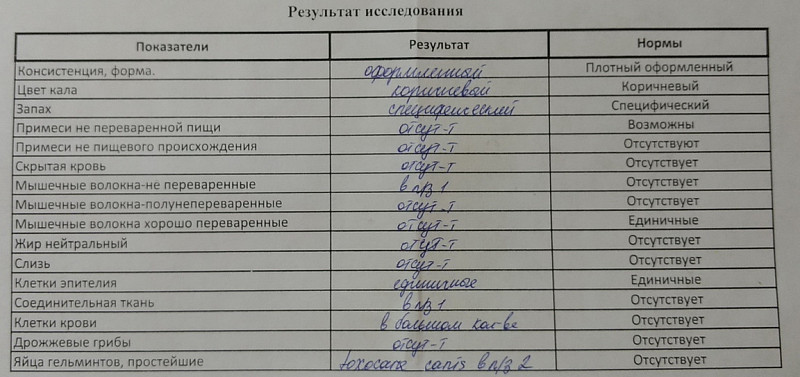 Результат исследования
Показатели Результат Нормы
Консистенция, форма. оформленный Плотный оформленный
Цвет кала коричневый Коричневый
Запах специфический Специфический
Примеси не переваренной пищи отсут-т Возможны
Примеси не пищевого происхождения отсут-т Отсутствуют
Скрытая кровь отсут-т Отсутствует
Мышечные волокна-не переваренные в п/з 1 Отсутствует
Мышечные волокна-полунепереваренные отсут-т Отсутствует
Мышечные волокна хорошо переваренные отсут-т Единичные
Жир нейтральный отсут-т Отсутствует
Слизь отсут-т Отсутствует
Клетки эпителия единичное Единичные
Соединительная ткань в п/з 1 Отсутствует
Клетки крови в большом кол-ве Отсутствует
Дрожжевые грибы отсут-т Отсутствует
Яйца гельминтов, простейшие toxocara canis в п/з 2 Отсутствует